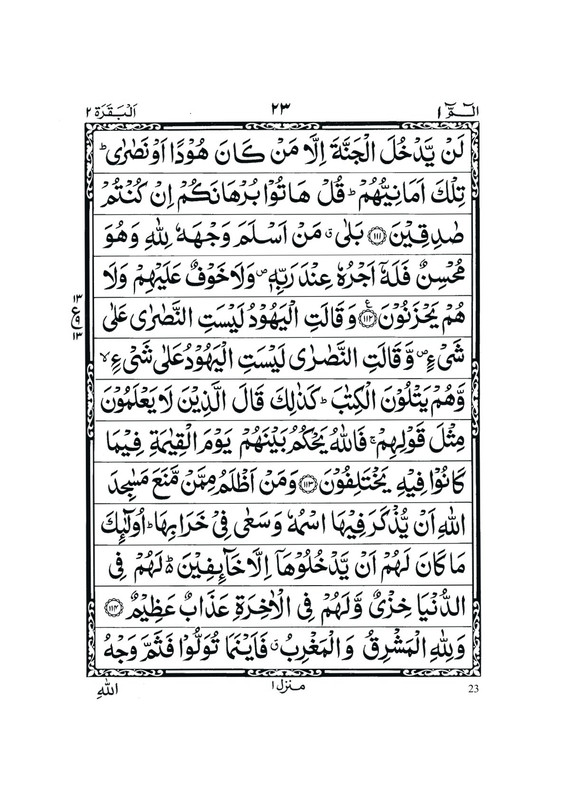 الٓمّٓ ۱ ۲۳ اَلْبَقَرَة ۲
لَنْ يَّدْخُلَ الْجَنَّةَ اِلَّا مَنْ كَانَ هُوْدًا اَوْ نَصٰرٰى ؕ
تِلْكَ اَمَانِيُّهُمْ ؕ قُلْ هَاتُوْا بُرْهَانَكُمْ اِنْ كُنْتُمْ
صٰدِقِيْنَ ﴿۱۱۱﴾ بَلٰى ۗ مَنْ اَسْلَمَ وَجْهَهٗ لِلّٰهِ وَهُوَ
مُحْسِنٌ فَلَهٗۤ اَجْرُهٗ عِنْدَ رَبِّهٖ ۪ وَلَا خَوْفٌ عَلَيْهِمْ وَلَا
هُمْ يَحْزَنُوْنَ ﴿۱۱۲﴾ وَقَالَتِ الْيَهُوْدُ لَيْسَتِ النَّصٰرٰى عَلٰى
۱۳ ع ۹ ۱۳
شَىْءٍ ۪ وَّقَالَتِ النَّصٰرٰى لَيْسَتِ الْيَهُوْدُ عَلٰى شَىْءٍ ۙ
وَّهُمْ يَتْلُوْنَ الْكِتٰبَ ؕ كَذٰلِكَ قَالَ الَّذِيْنَ لَا يَعْلَمُوْنَ
مِثْلَ قَوْلِهِمْ ۚ فَاللّٰهُ يَحْكُمُ بَيْنَهُمْ يَوْمَ الْقِيٰمَةِ فِيْمَا
كَانُوْا فِيْهِ يَخْتَلِفُوْنَ ﴿۱۱۳﴾ وَمَنْ اَظْلَمُ مِمَّنْ مَّنَعَ مَسٰجِدَ
اللّٰهِ اَنْ يُّذْكَرَ فِيْهَا اسْمُهٗ وَسَعٰى فِىْ خَرَابِهَا ؕ اُولٰٓئِكَ
مَا كَانَ لَهُمْ اَنْ يَّدْخُلُوْهَاۤ اِلَّا خَآئِفِيْنَ ؕ۬ لَهُمْ فِى
الدُّنْيَا خِزْىٌ وَّلَهُمْ فِى الْاٰخِرَةِ عَذَابٌ عَظِيْمٌ ﴿۱۱۴﴾
وَلِلّٰهِ الْمَشْرِقُ وَالْمَغْرِبُ ۗ فَاَيْنَمَا تُوَلُّوْا فَثَمَّ وَجْهُ
اللّٰهِ منزل ۱ 23